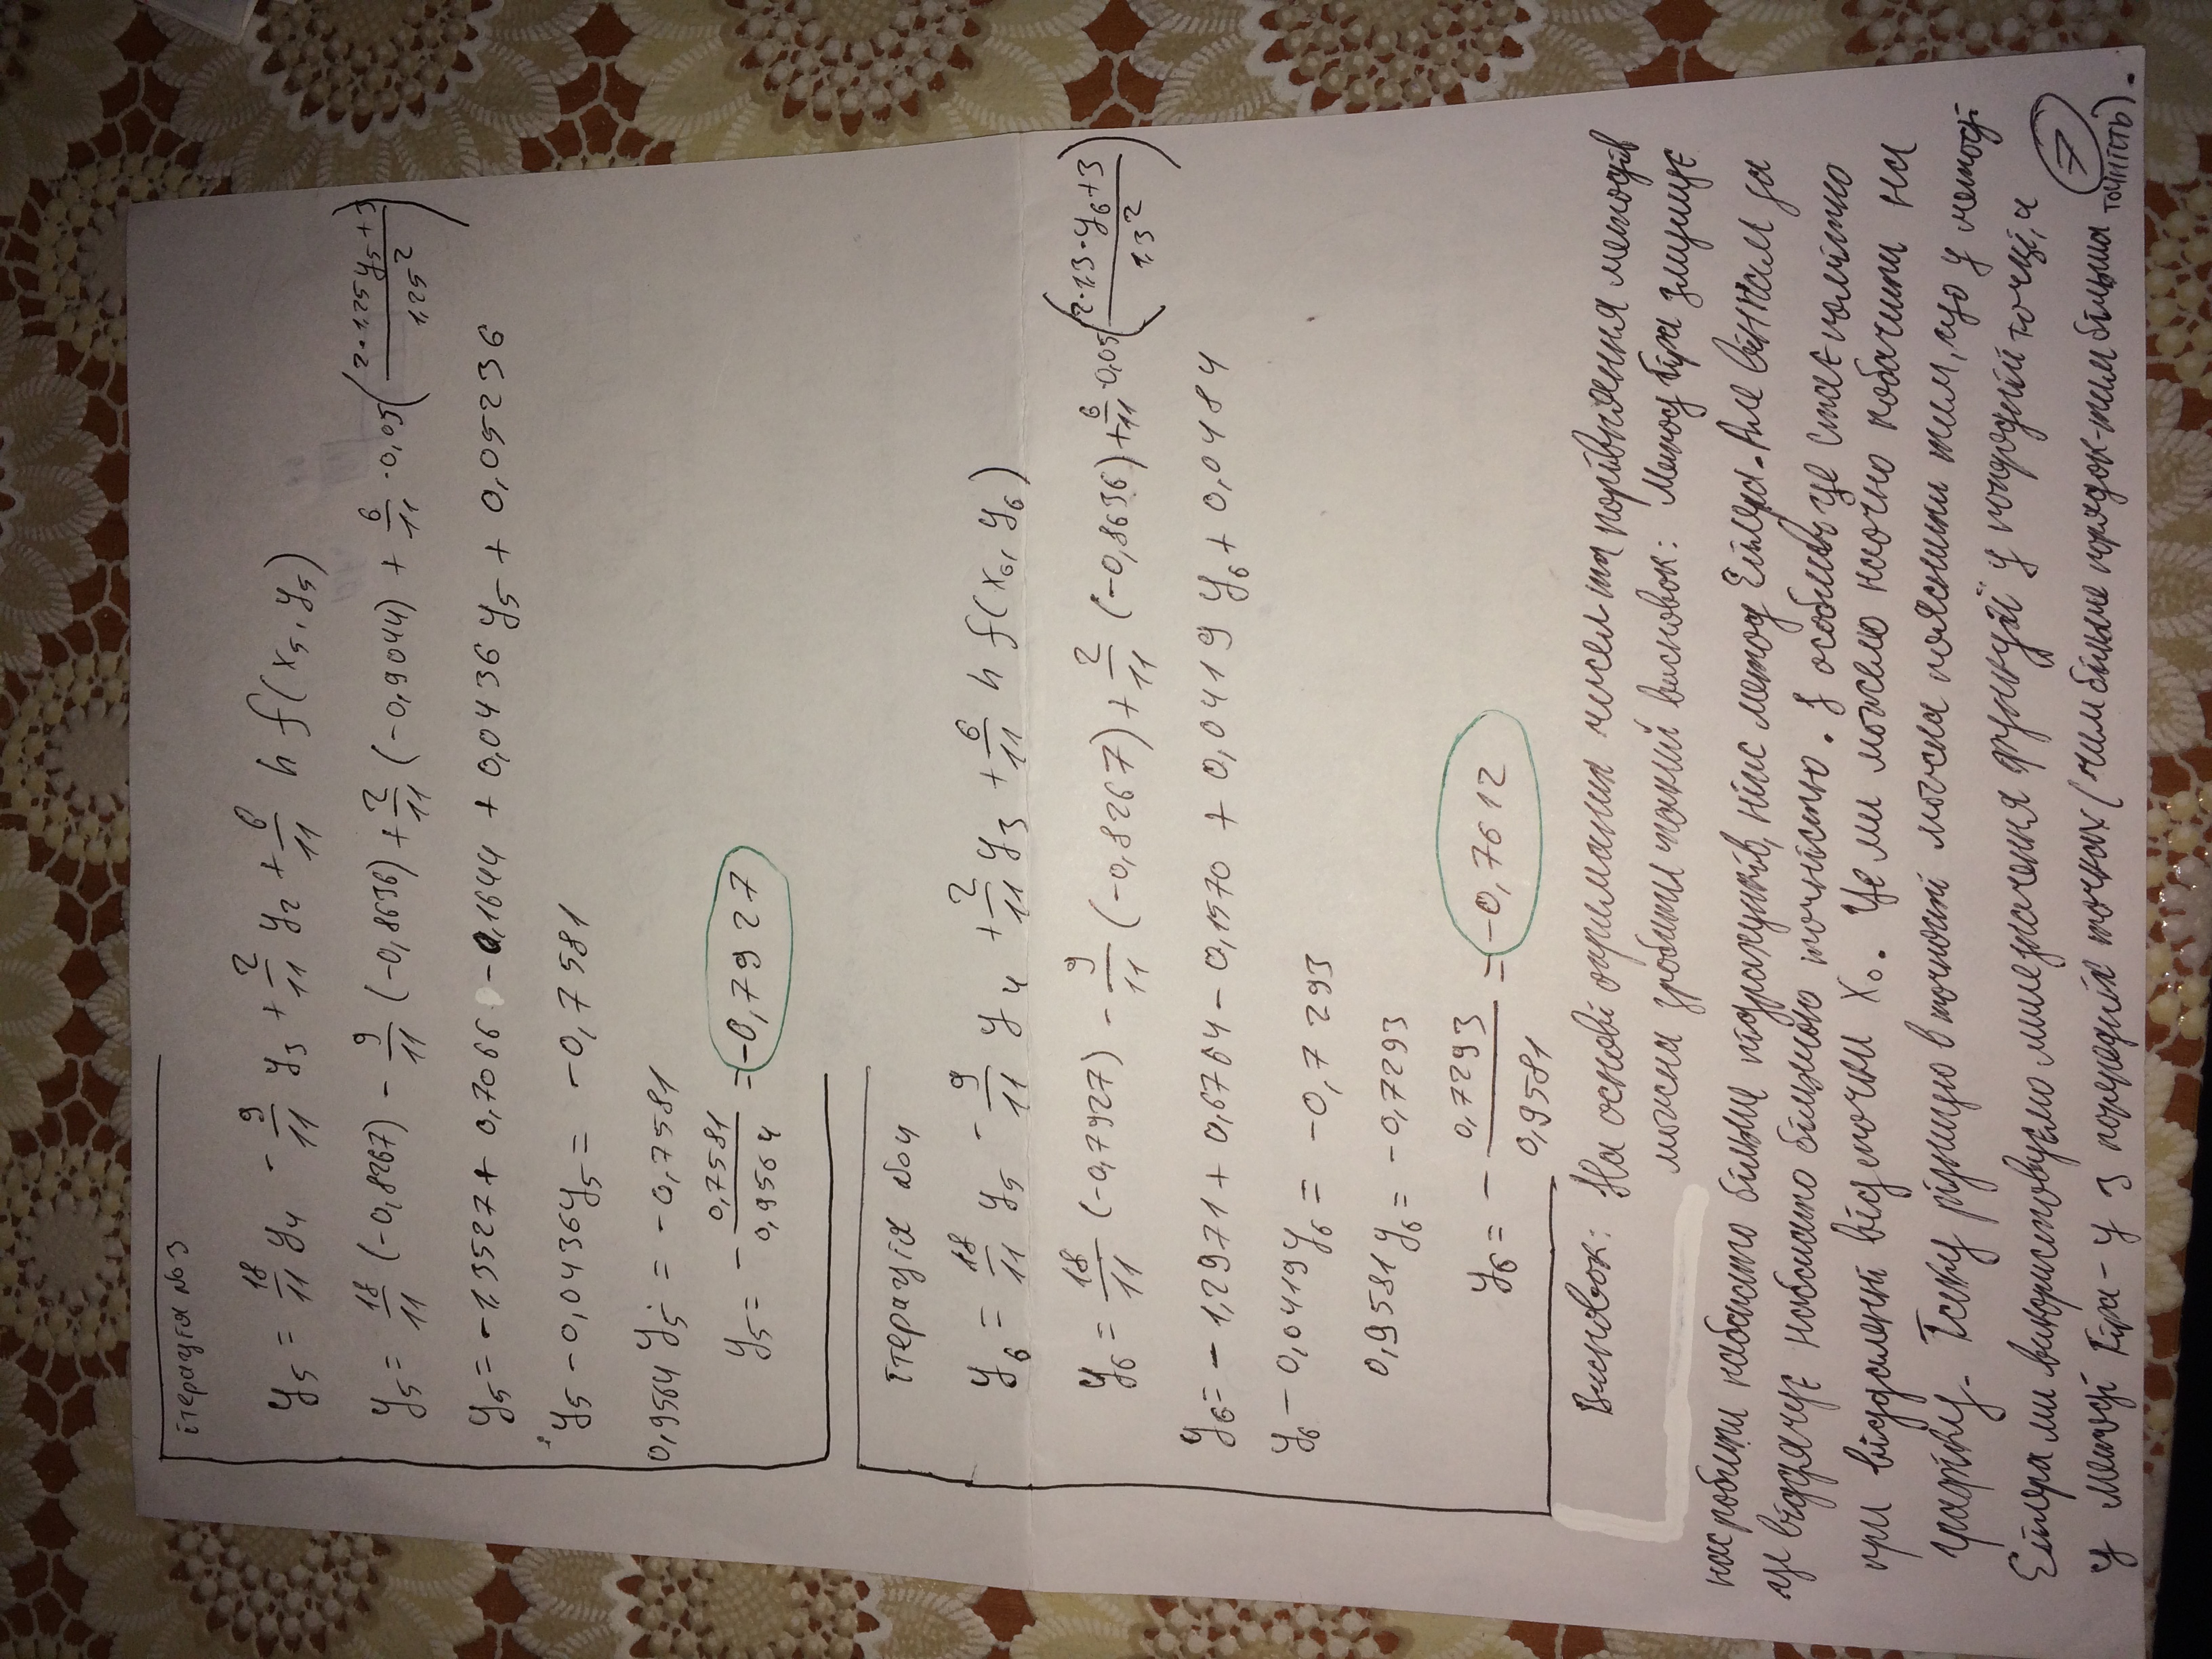 ітерація №3
y₅ = 18/11 y₄ - 9/11 y₃ + 2/11 y₂ + 6/11 h f(x₅, y₅)
y₅ = 18/11 (-0,8267) - 9/11 (-0,8636) + 2/11 (-0,9044) + 6/11 · 0,05 ((2·1,25 y₅ + 3)/1,25²)
y₅ = -1,3527 + 0,7066 - 0,1644 + 0,0436 y₅ + 0,05236
y₅ - 0,0436 y₅ = -0,7581
0,9564 y₅ = -0,7581
y₅ = - 0,7581/0,9564 = -0,7927
ітерація №4
y₆ = 18/11 y₅ - 9/11 y₄ + 2/11 y₃ + 6/11 h f(x₆, y₆)
y₆ = 18/11 (-0,7927) - 9/11 (-0,8267) + 2/11 (-0,8636) + 6/11 · 0,05 ((2·1,3·y₆ + 3)/1,3²)
y₆ = -1,2971 + 0,6764 - 0,1570 + 0,0419 y₆ + 0,0484
y₆ - 0,0419 y₆ = -0,7293
0,9581 y₆ = -0,7293
y₆ = - 0,7293/0,9581 = -0,7612
Висновок: На основі отриманих чисел та порівняння методів
можна зробити такий висновок: Метод Гіра змушує
нас робити набагато більше підрахунків, ніж метод Ейлера. Але він нам за
це віддячує набагато більшою точністю. І особливо це стає помітно
при віддалені від точки x₀. Це ми можемо наочно побачити на
графіку. Таку різницю в точності можна пояснити тим, що у методі
Ейлера ми використовуємо лише значення функції у попередній точці, а
у методі Гіра - у 3 попередніх точках (чим більше порядок - тим більша точність).
7